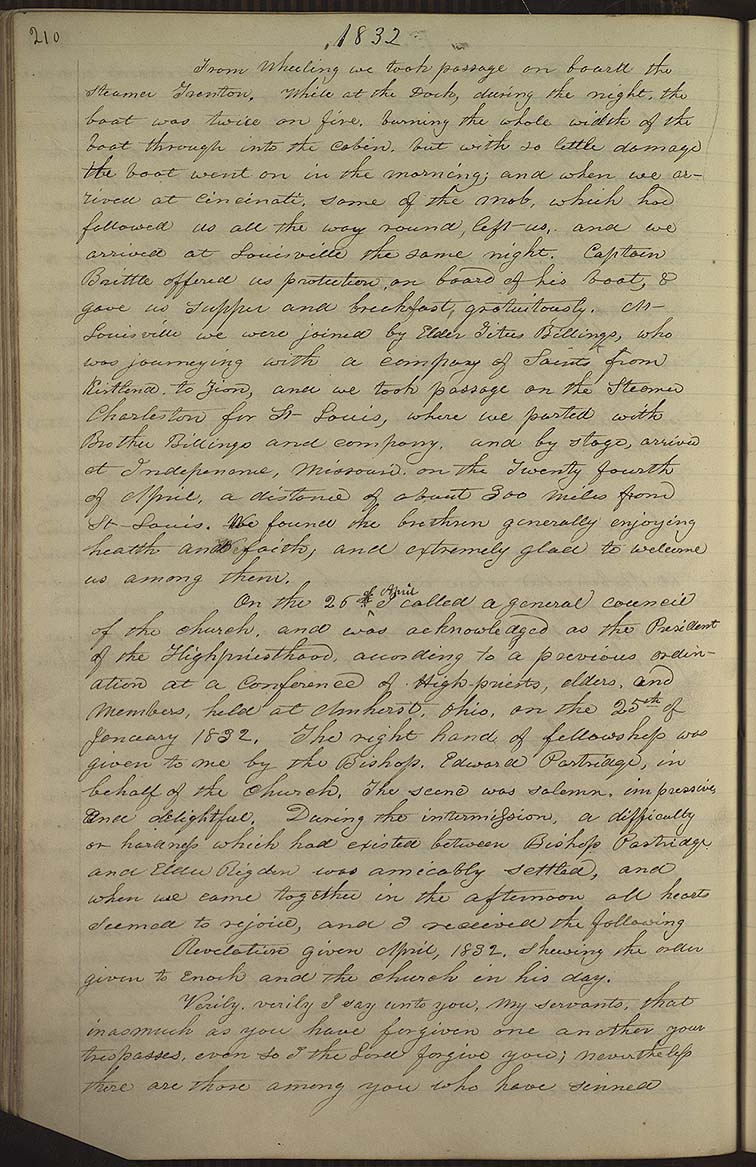 210
1832
From Wheeling we took passage on board the
Steamer Trenton. While at the Dock, during the night, the
boat was twice on fire, burning the whole width of the
boat through into the cabin, but with so little damage
the boat went on in the morning; and when we ar-
rived at Cincinati, some of the mob, which had
followed us all the way round, left us, and we
arrived at Louisville the same night. Captain
Brittle offered us protection on board of his boat, &
gave us supper and breakfast, gratuitously. At
Louisville we were joined by Elder Titus Billings, who
was journeying with a company of Saints from
Kirtland to Zion, and we took passage on the Steamer
Charleston for St Louis, where we parted with
Brother Billings and company, and by stage, arrived
at Independence, Missouri, on the Twenty fourth
of April, a distance of about 300 miles from
St Louis. We found the brethren generally enjoying
health and faith; and extremely glad to welcome
us among them.
On the 26 of April I called a general council
of the church, and was acknowledged as the President
of the Highpriesthood, according to a previous ordin-
ation at a conference of High-priests, elders, and
members, held at Amherst, Ohio, on the 25th of
Jenuary 1832. The right hand of fellowship was
given to me by the Bishop, Edward Partridge, in
behalf of the Church. The scene was solemn, impressive,
and delightful. During the intermission, a difficulty
or hardness which had existed between Bishop Partridge
and Elder Rigdon was amicably settled, and
when we came together in the afternoon all hearts
seemed to rejoice, and I received the following
Revelation given April, 1832, shewing the order
given to Enoch and the church in his day.
Verily, verily I say unto you, my servants, that
inasmuch as you have forgiven one another your
trespasses, even so I the Lord forgive you; nevertheless
there are those among you who have sinned